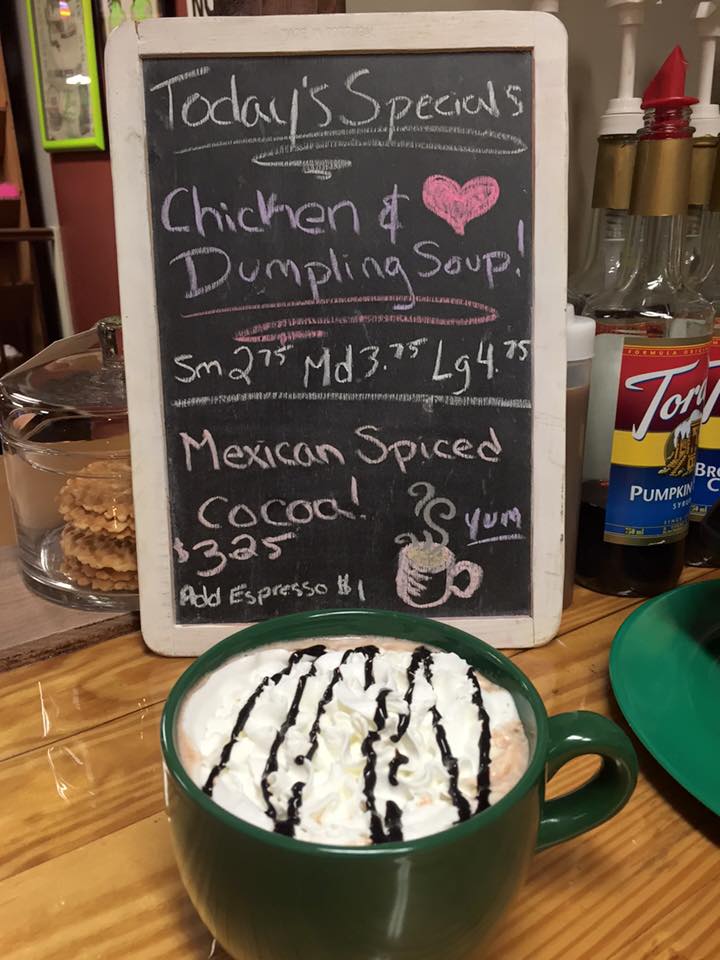 NO
Today's Specials
Chicken &
Dumpling Soup!
Sm 2.75 Md 3.75 Lg 4.75
Mexican Spiced
Cocoa!
$3.25
YUM
Add Espresso $1
FORMULA
Tor
PUMPKIN
SY
BR
C